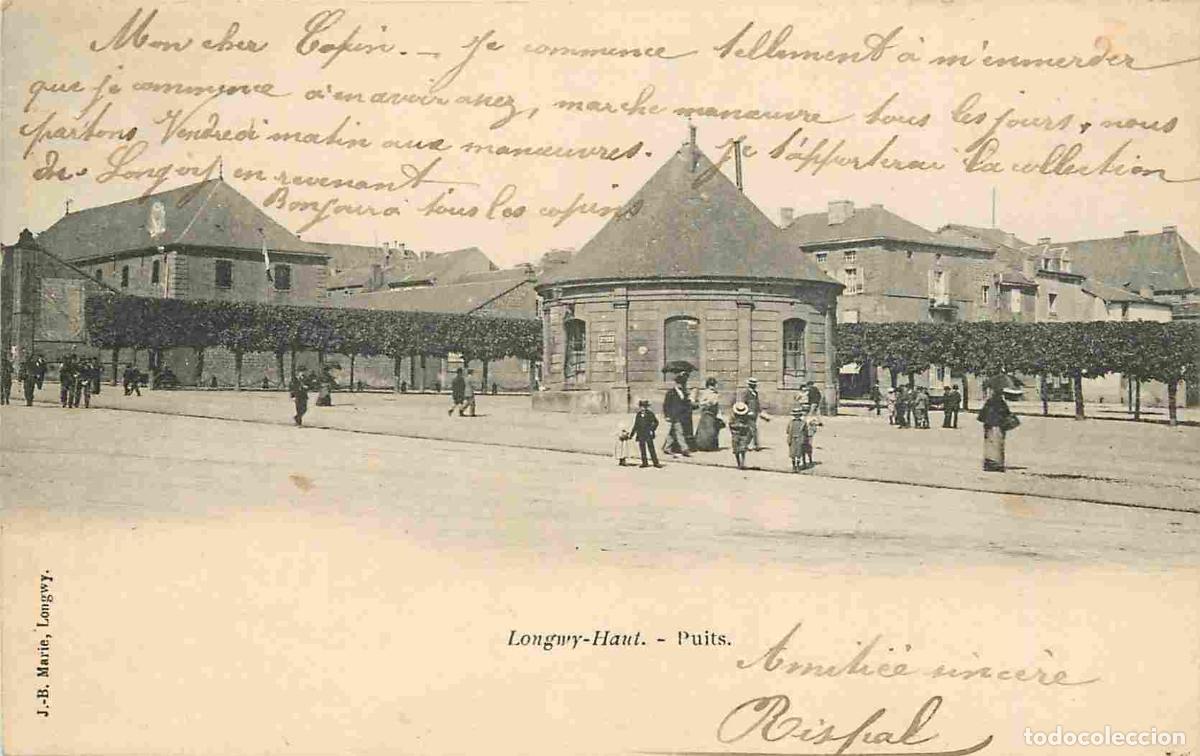 Mon cher Copin. - Je commence tellement à m'enmerder
que je commence à en avoir assez, marche manœuvre tous les jours, nous
partons Vendredi matin aux manœuvres. Je t'apporterai la collection
de Longwy en revenant
Bonjour à tous les copins
J.-B. Marie, Longwy.
Longwy-Haut. - Puits.
Amitiée sincère
Rispal
todocoleccion